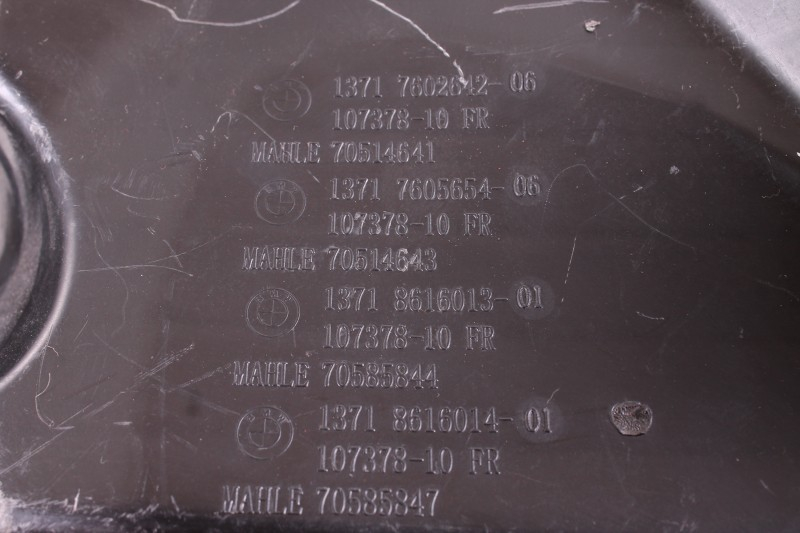 1371 7602642-06
107378-10 FR
MAHLE 70514641
1371 7605654-06
107378-10 FR
MAHLE 70514643
1371 8616013-01
107378-10 FR
MAHLE 70585844
1371 8616014-01
107378-10 FR
MAHLE 70585847